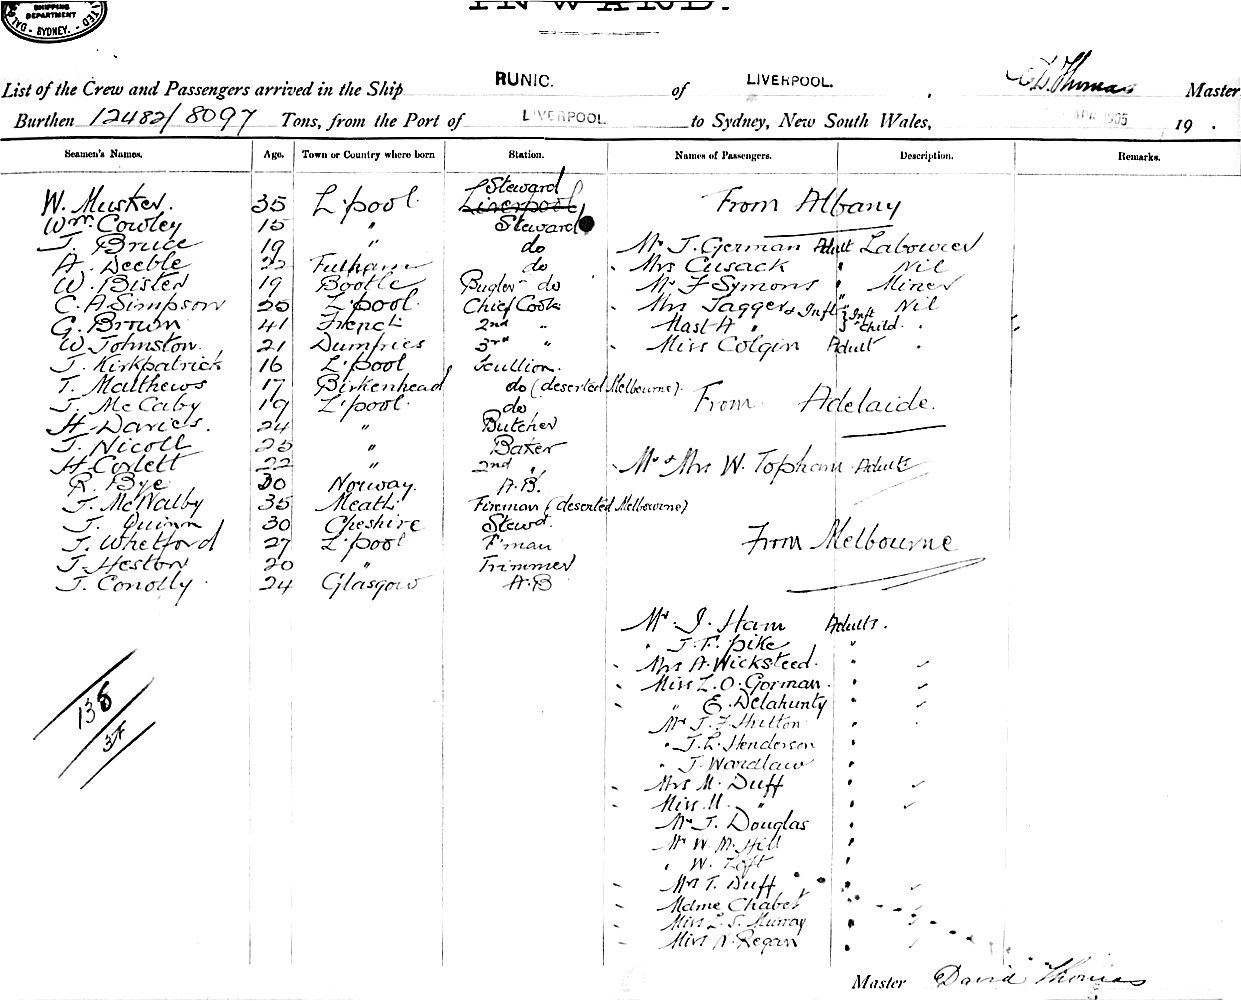 INWARD.
SHIPPING
DEPARTMENT
SYDNEY.
List of the Crew and Passengers arrived in the Ship RUNIC. of LIVERPOOL. Thomas Master
Burthen 12482/8097 Tons, from the Port of LIVERPOOL to Sydney, New South Wales, 19 .
Seamen's Names. Age. Town or Country where born Station. Names of Passengers. Description. Remarks.
W. Musker. 35 L'pool Steward Liverpool
Wm. Cowley 15 " Steward
J. Bruce 19 " do
A. Deeble 22 Fulham do
W. Bister 19 Bootle Bugler do
C. A. Simpson 30 L'pool Chief Cook
G. Brown 41 French 2nd "
W Johnston 21 Dumfries 3rd "
J. Kirkpatrick 16 L'pool Scullion.
T. Matthews 17 Birkenhead do (deserted Melbourne).
J. McCaby 19 L'pool do
H. Davies. 24 " Butcher
J. Nicoll 25 " Baker
H. Corlett 22 " 2nd "
R. Bye 30 Norway. A.B.
J. McNalby 35 Meath Fireman (deserted Melbourne)
J. Quinn 30 Cheshire Stewd.
J. Whelford 27 L'pool F'man
J. Heston 20 " Trimmer
J. Conolly 24 Glasgow A.B
138
37
From Albany
Mr J. German Adult Labourer
Mrs Cusack " Nil
Mr F Symons " Miner
Mrs Jagger & Inft " Inft Nil
Mast A " " Child.
Miss Colgin Adult
From Adelaide.
Mr & Mrs W. Topham Adults
From Melbourne
Mr J. Ham Adults.
" J. F. Pike "
Mrs A. Wicksteed. "
Miss L. O. Gorman. "
" E. Delahunty "
Mr J. F. Hutton "
" J. L. Henderson "
" J. Wardlaw "
Mrs M. Duff "
Miss M. " "
Mr J. Douglas "
Mr W. M. Hill "
" W. Loft "
Mrs T. Duff "
Mdme Chabet "
Miss L. S. Murray "
Miss N. Regan "
Master David Thomas